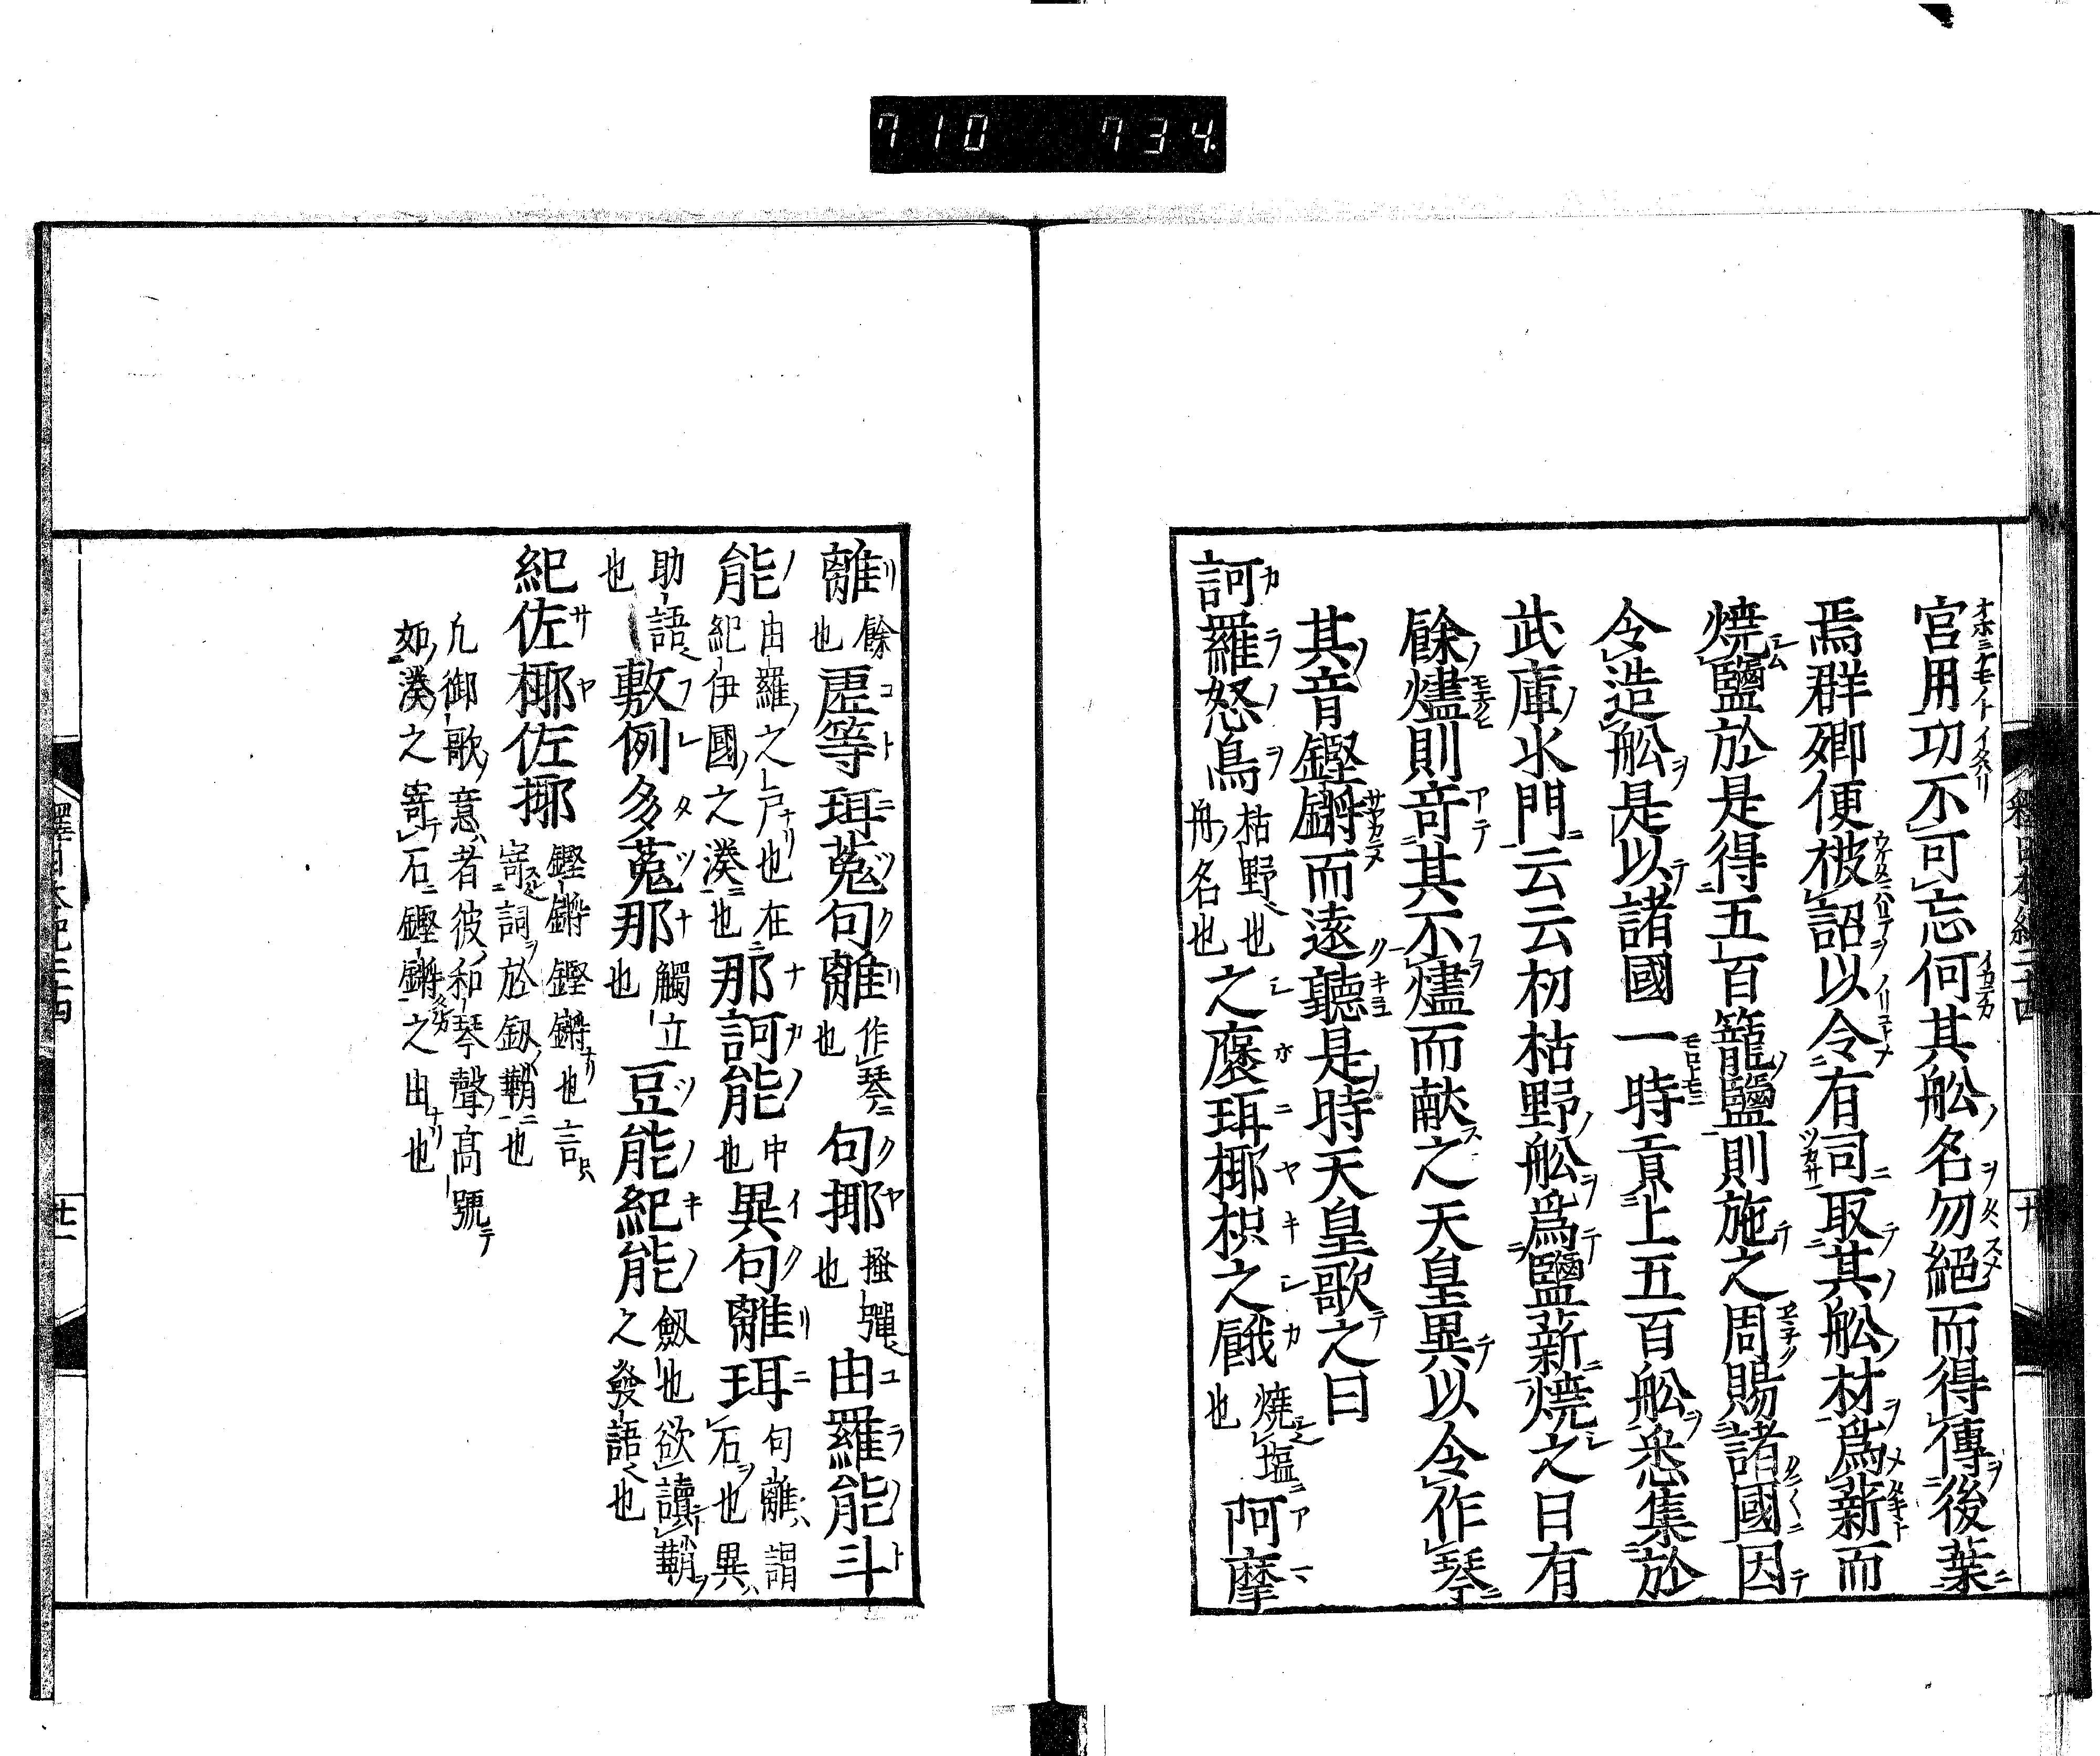 710 734
宮用功不可忘何其舩名勿絕而得傳後葉
焉群卿便被詔以令有司取其舩材為薪而
燒鹽於是得五百籠鹽則施之周賜諸國因
令造舩是以諸國一時貢上五百舩悉集於
武庫水門云云初枯野舩為鹽薪燒之日有
餘燼則竒其不燼而献之天皇異以令作琴
其音鏗鏘而遠聽是時天皇歌之曰
訶羅怒烏枯野也舟名也之褒珥椰枳之餓燒塩也阿摩
離餘也虛等珥菟句離作琴也句揶搔彈也由羅能斗
能由羅之戸也在紀伊國之湊也那訶能中也異句離珥句離謂石也異
助語也敷例多菟那觸立也豆能紀能劔也欲讀鞘之發語也
紀佐椰佐揶鏗鏘鏗鏘也言寄詞於釼鞘也
凢御歌意者彼和琴聲髙號
如湊之寄石鏗鏘之由也